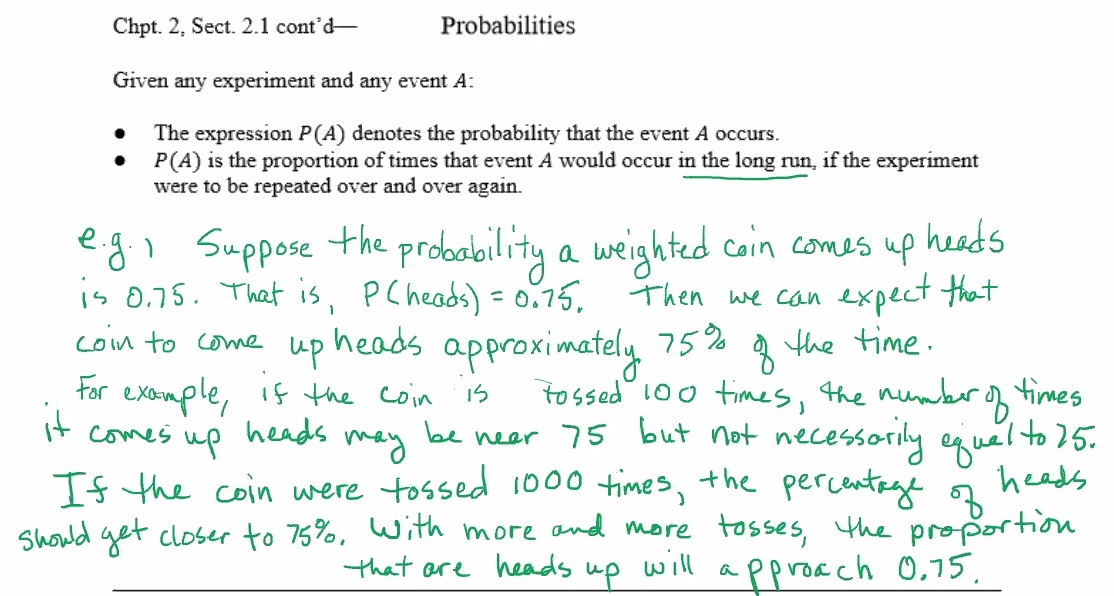 Chpt. 2, Sect. 2.1 cont'd— Probabilities
Given any experiment and any event A:
● The expression P(A) denotes the probability that the event A occurs.
● P(A) is the proportion of times that event A would occur in the long run, if the experiment
were to be repeated over and over again.
e.g., Suppose the probability a weighted coin comes up heads
is 0.75. That is, P(heads) = 0.75. Then we can expect that
coin to come up heads approximately 75% of the time.
For example, if the coin is tossed 100 times, the number of times
it comes up heads may be near 75 but not necessarily equal to 75.
If the coin were tossed 1000 times, the percentage of heads
should get closer to 75%. With more and more tosses, the proportion
that are heads up will approach 0.75.